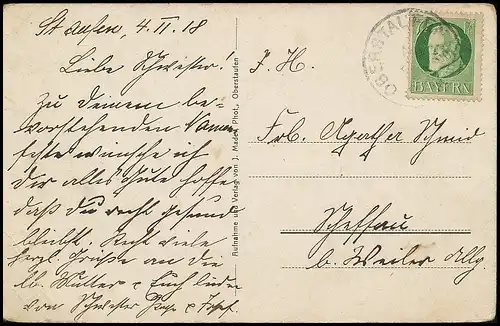 Staufen, 4. II. 18
Liebe Schwester!
Zu Deinem be-
vorstehenden Namens-
feste wünsche ich
Dir alles Gute hoffe
daß Du recht gesund
bleibst. Recht viele
herzl. Grüße an die
lb. Mutter u. Euch beiden
von Schwester u. Josef.
Aufnahme und Verlag von J. Mader, Phot., Oberstaufen
OBERSTAUFEN
BAYERN
J. H.
Frl. Agathe Schmid
Scheffau
b. Weiler Allg.